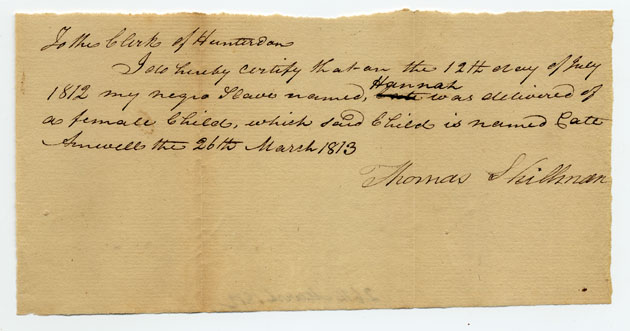 To the Clerk of Hunterdon
I do hereby certify that on the 12th day of July
1812 my negro Slave named, Hannah was delivered of
a female Child, which said Child is named Cate
Amwell the 26th March 1813
Thomas Skillman